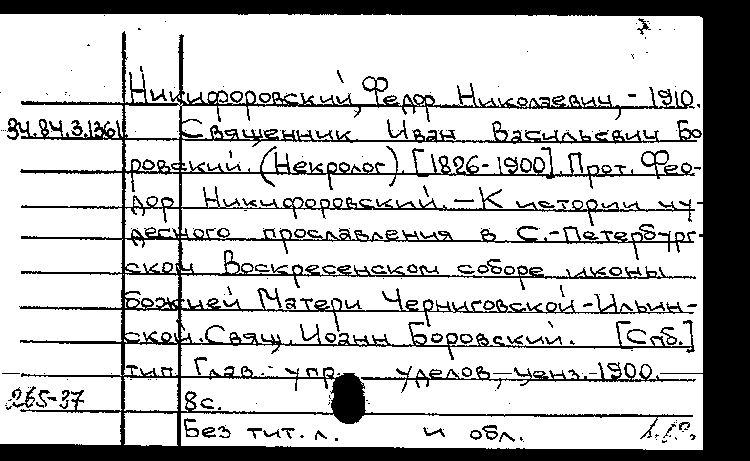 Никифоровский, Федор Николаевич, - 1910.
34.84.3.1361 Священник Иван Васильевич Бо
ровский. (Некролог). [1826-1900]. Прот. Фео-
дор Никифоровский. - К истории чу-
десного прославления в С.-Петербург-
ском Воскресенском соборе иконы
божией Матери Черниговской-Ильин-
ской. Свящ. Иоанн Боровский. [Спб.]
тип Глав. упр. уделов, ценз. 1900.
265-37 8с.
Без тит. л. и обл.